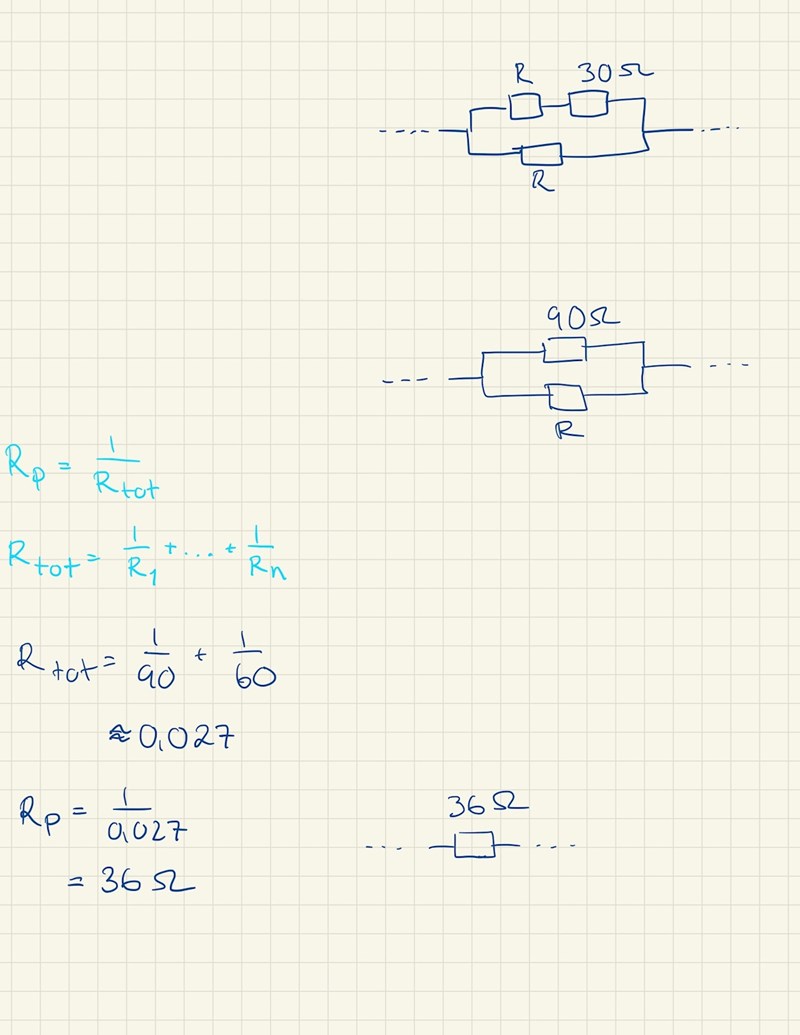 R 30Ω
R
90Ω
R
Rp = 1/Rtot
Rtot = 1/R1 + ... + 1/Rn
Rtot = 1/90 + 1/60
≈ 0,027
Rp = 1/0,027
= 36Ω
36Ω